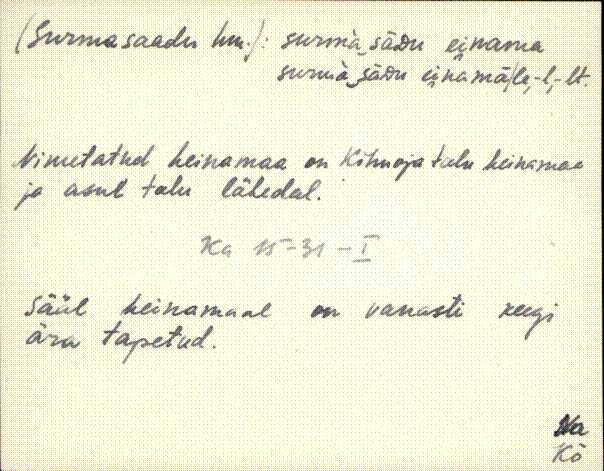 (Surmasaadu hm.): surmà‿sàᴅu einama
surmà‿sàᴅu einamà/le,-l,-lt.
Nimetatud heinamaa on Kihnoja talu heinamaa
ja asub talu lähedal.
Ka 15-31-I
Sääl heinamaal on vanasti keegi
ära tapetud.
Ka
Kõ